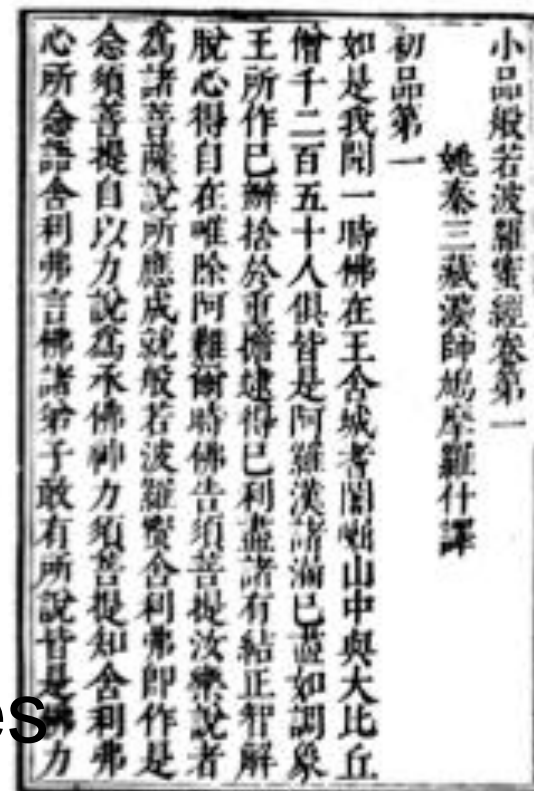 小品般若波羅蜜經卷第一
姚秦三藏灋師鳩摩羅什譯
初品第一
如是我聞一時佛在王舍城耆闍崛山中與大比丘
僧千二百五十人俱皆是阿羅漢諸漏已盡如調象
王所作已辦捨於重擔逮得已利盡諸有結正智解
脫心得自在唯除阿難爾時佛告須菩提汝樂說者
爲諸菩薩說所應成就般若波羅蜜舍利弗即作是
念須菩提自以力說爲承佛神力須菩提知舍利弗
心所念語舍利弗言佛諸弟子敢有所說皆是佛力
es